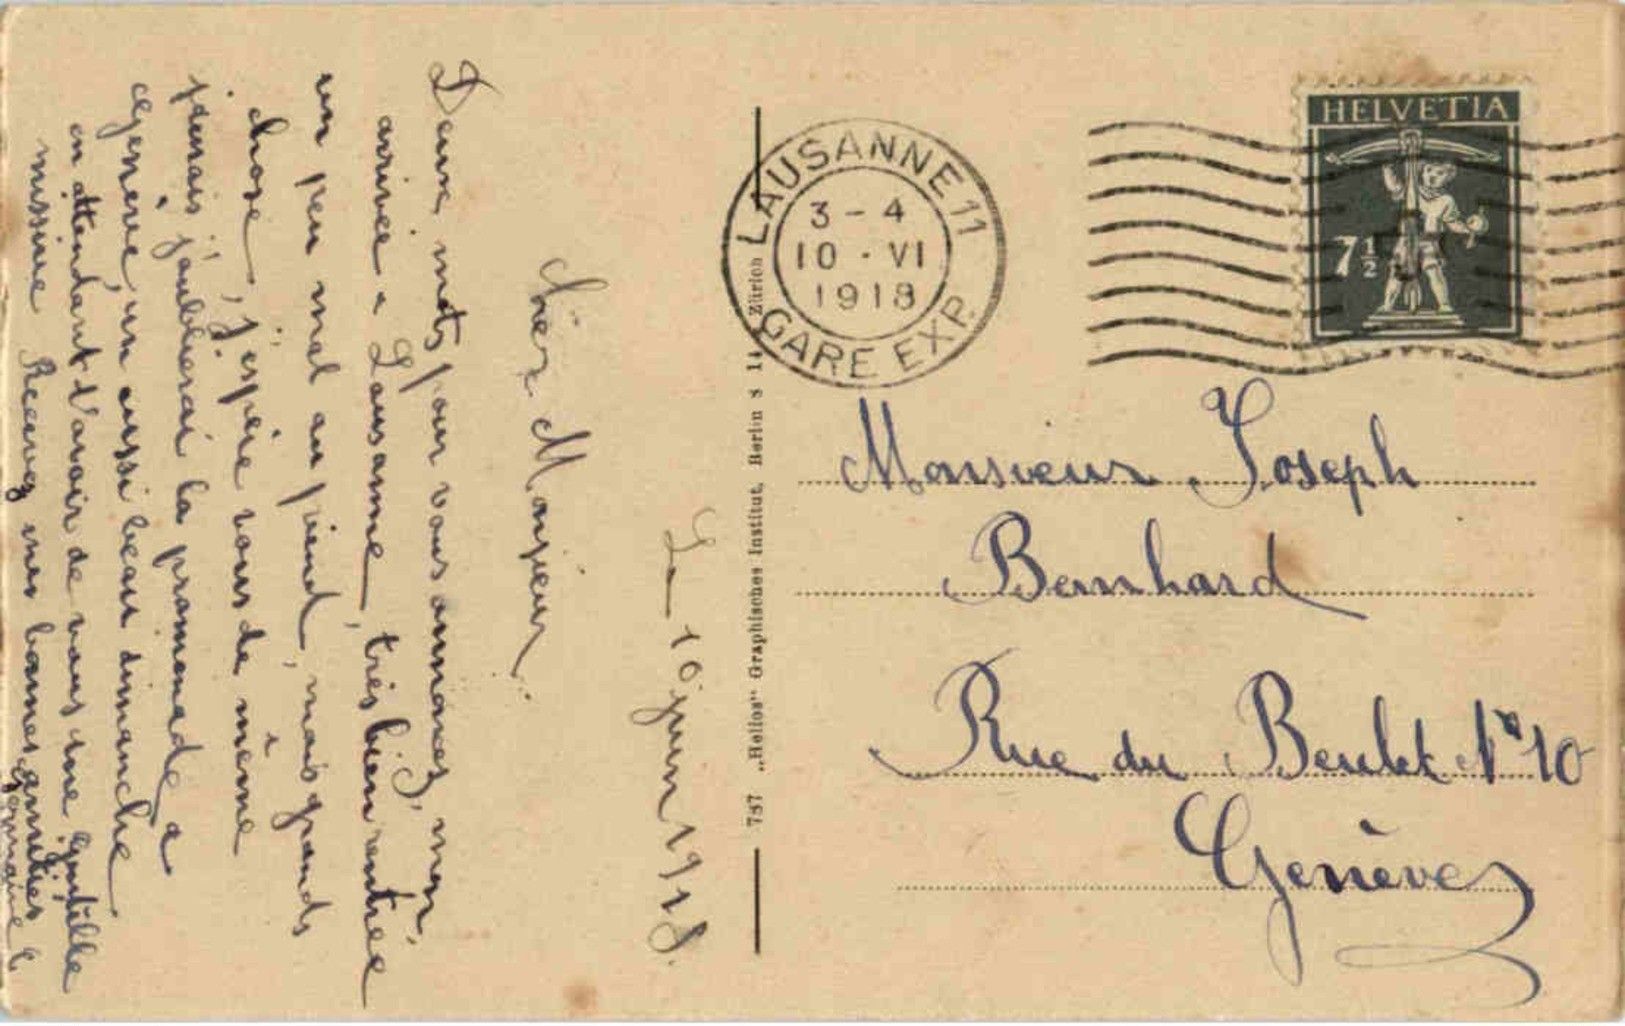 Le 10 juin 1918.
Cher Monsieur,
Deux mots pour vous annoncez, mon,
arrivée a Lausanne, très bien rentrée
un peu mal au pied, mais grands
chose, j'éspére vous de même
jamais j'oublierai la promenade a
Genève, un aussi beau dimanche
en attendant d'avoir de vous une gentille
missive Recevez mes bonnes amitiés
Germaine
787 „Helios" Graphisches Institut, Berlin S 14 Zürich
LAUSANNE 11
3 - 4
10 · VI
1918
GARE EXP.
HELVETIA
7½
Monsieur Joseph
Bernhard
Rue du Beulet No 10
Genève